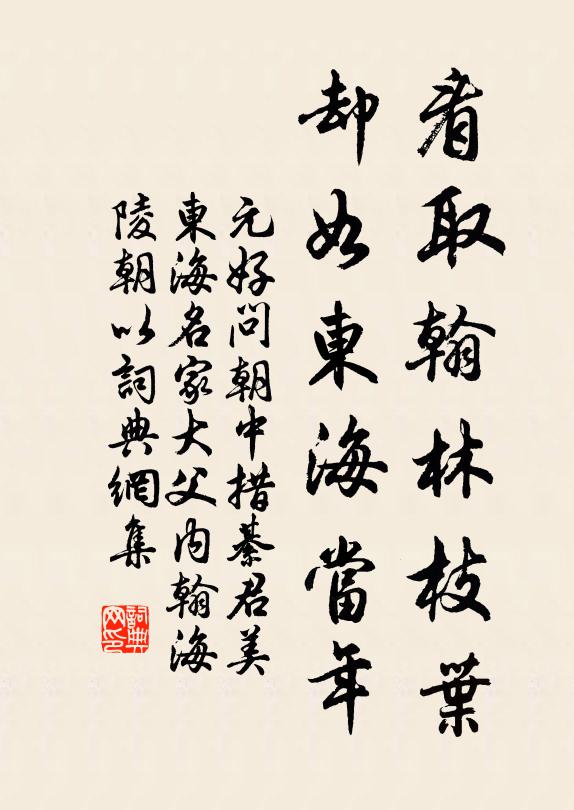 看取翰林枝葉
却如東海當年
元好問朝中措綦君美
東海名家大父内翰海
陵朝以詞典網集
詞典网印